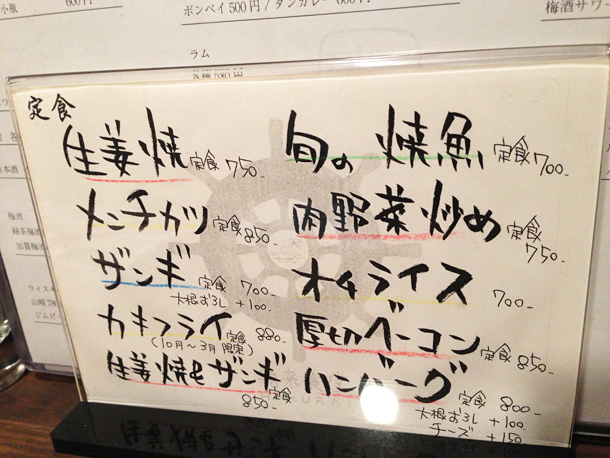 小瓶 600円
ボンベイ 500円 / タンカレー 600円
梅酒サワー
ラム
各種 580円
定食
生姜焼 定食 750-
メンチカツ 定食 850-
ザンギ 定食 700-
大根おろし +100-
カキフライ 定食 880-
(10月～3月 限定)
生姜焼&ザンギ 定食 850-
旬の焼魚 定食 700-
肉野菜炒め 定食 750-
オムライス 700-
厚切ベーコン 定食 850-
ハンバーグ 定食 800-
大根おろし +100-
チーズ +150-
日本酒
梅酒
緑茶梅酒
加賀梅酒
ウィスキ
山崎 780
ジムビー